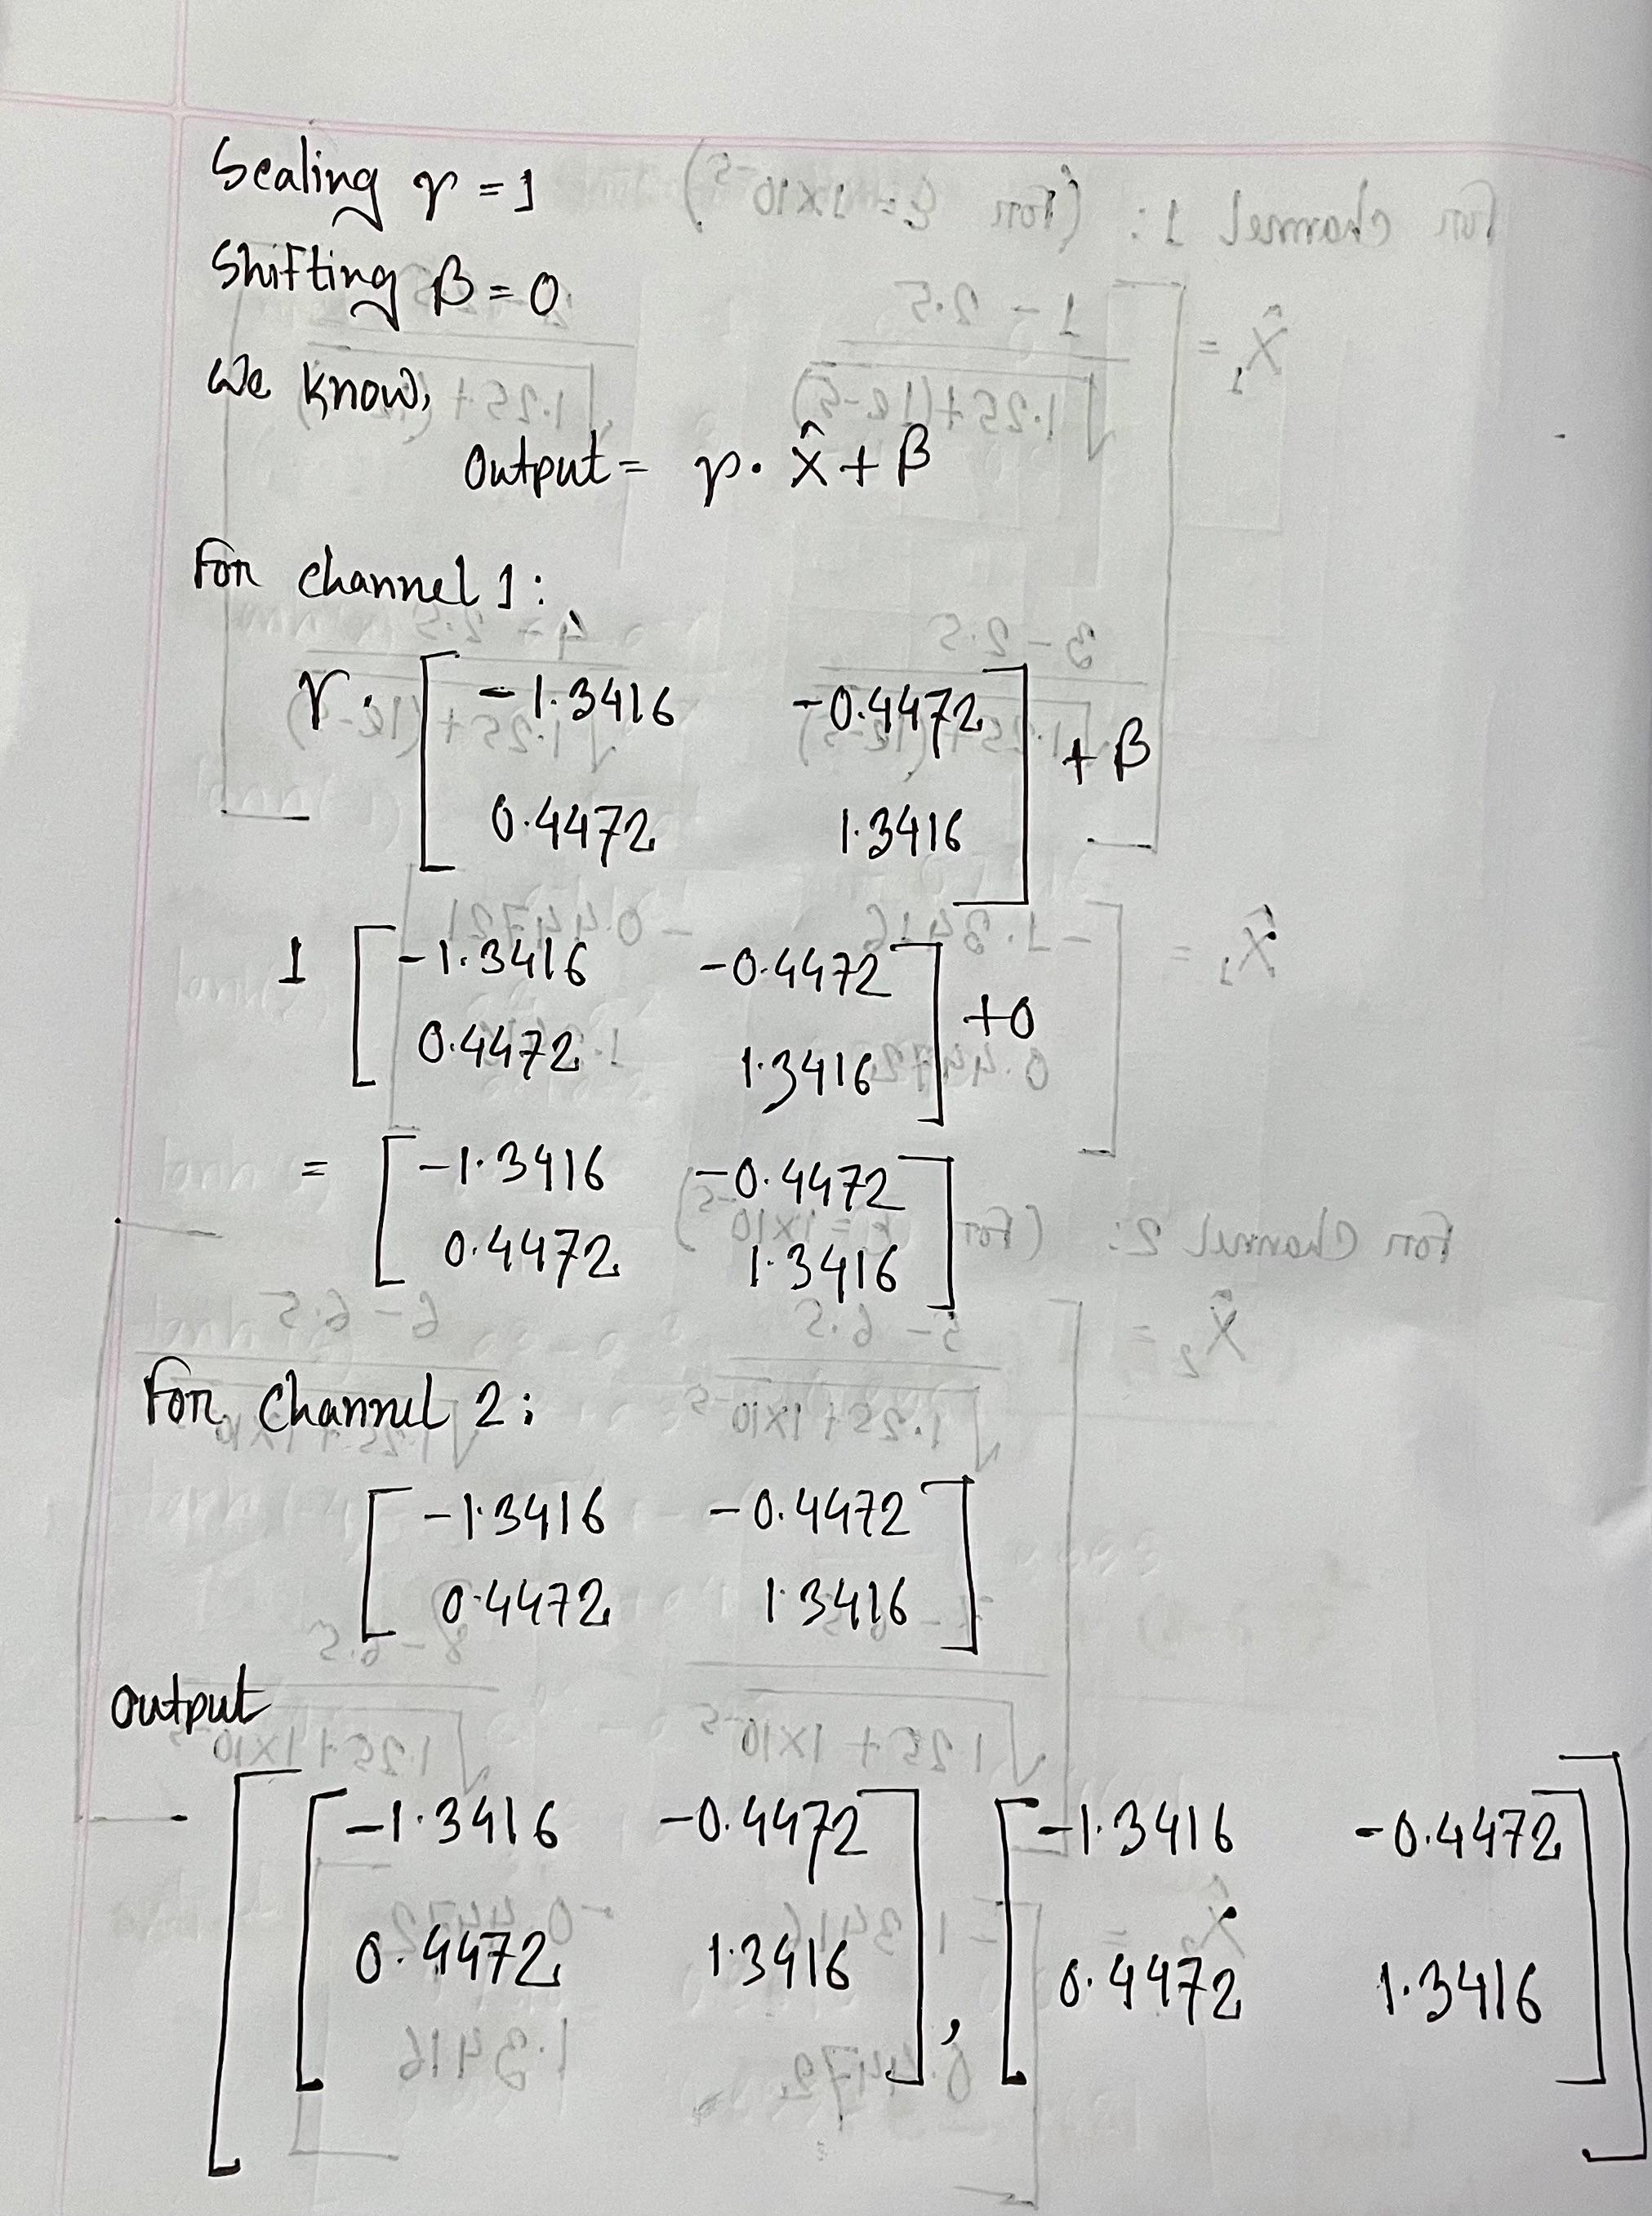 Scaling γ = 1
Shifting β = 0
We know,
Output = γ. X̂ + β
For channel 1:
γ. [ -1.3416 -0.4472
0.4472 1.3416 ] + β
1 [ -1.3416 -0.4472
0.4472 1.3416 ] +0
= [ -1.3416 -0.4472
0.4472 1.3416 ]
For channel 2:
[ -1.3416 -0.4472
0.4472 1.3416 ]
output
[ [ -1.3416 -0.4472 [ -1.3416 -0.4472
0.4472 1.3416 ] , 0.4472 1.3416 ] ]